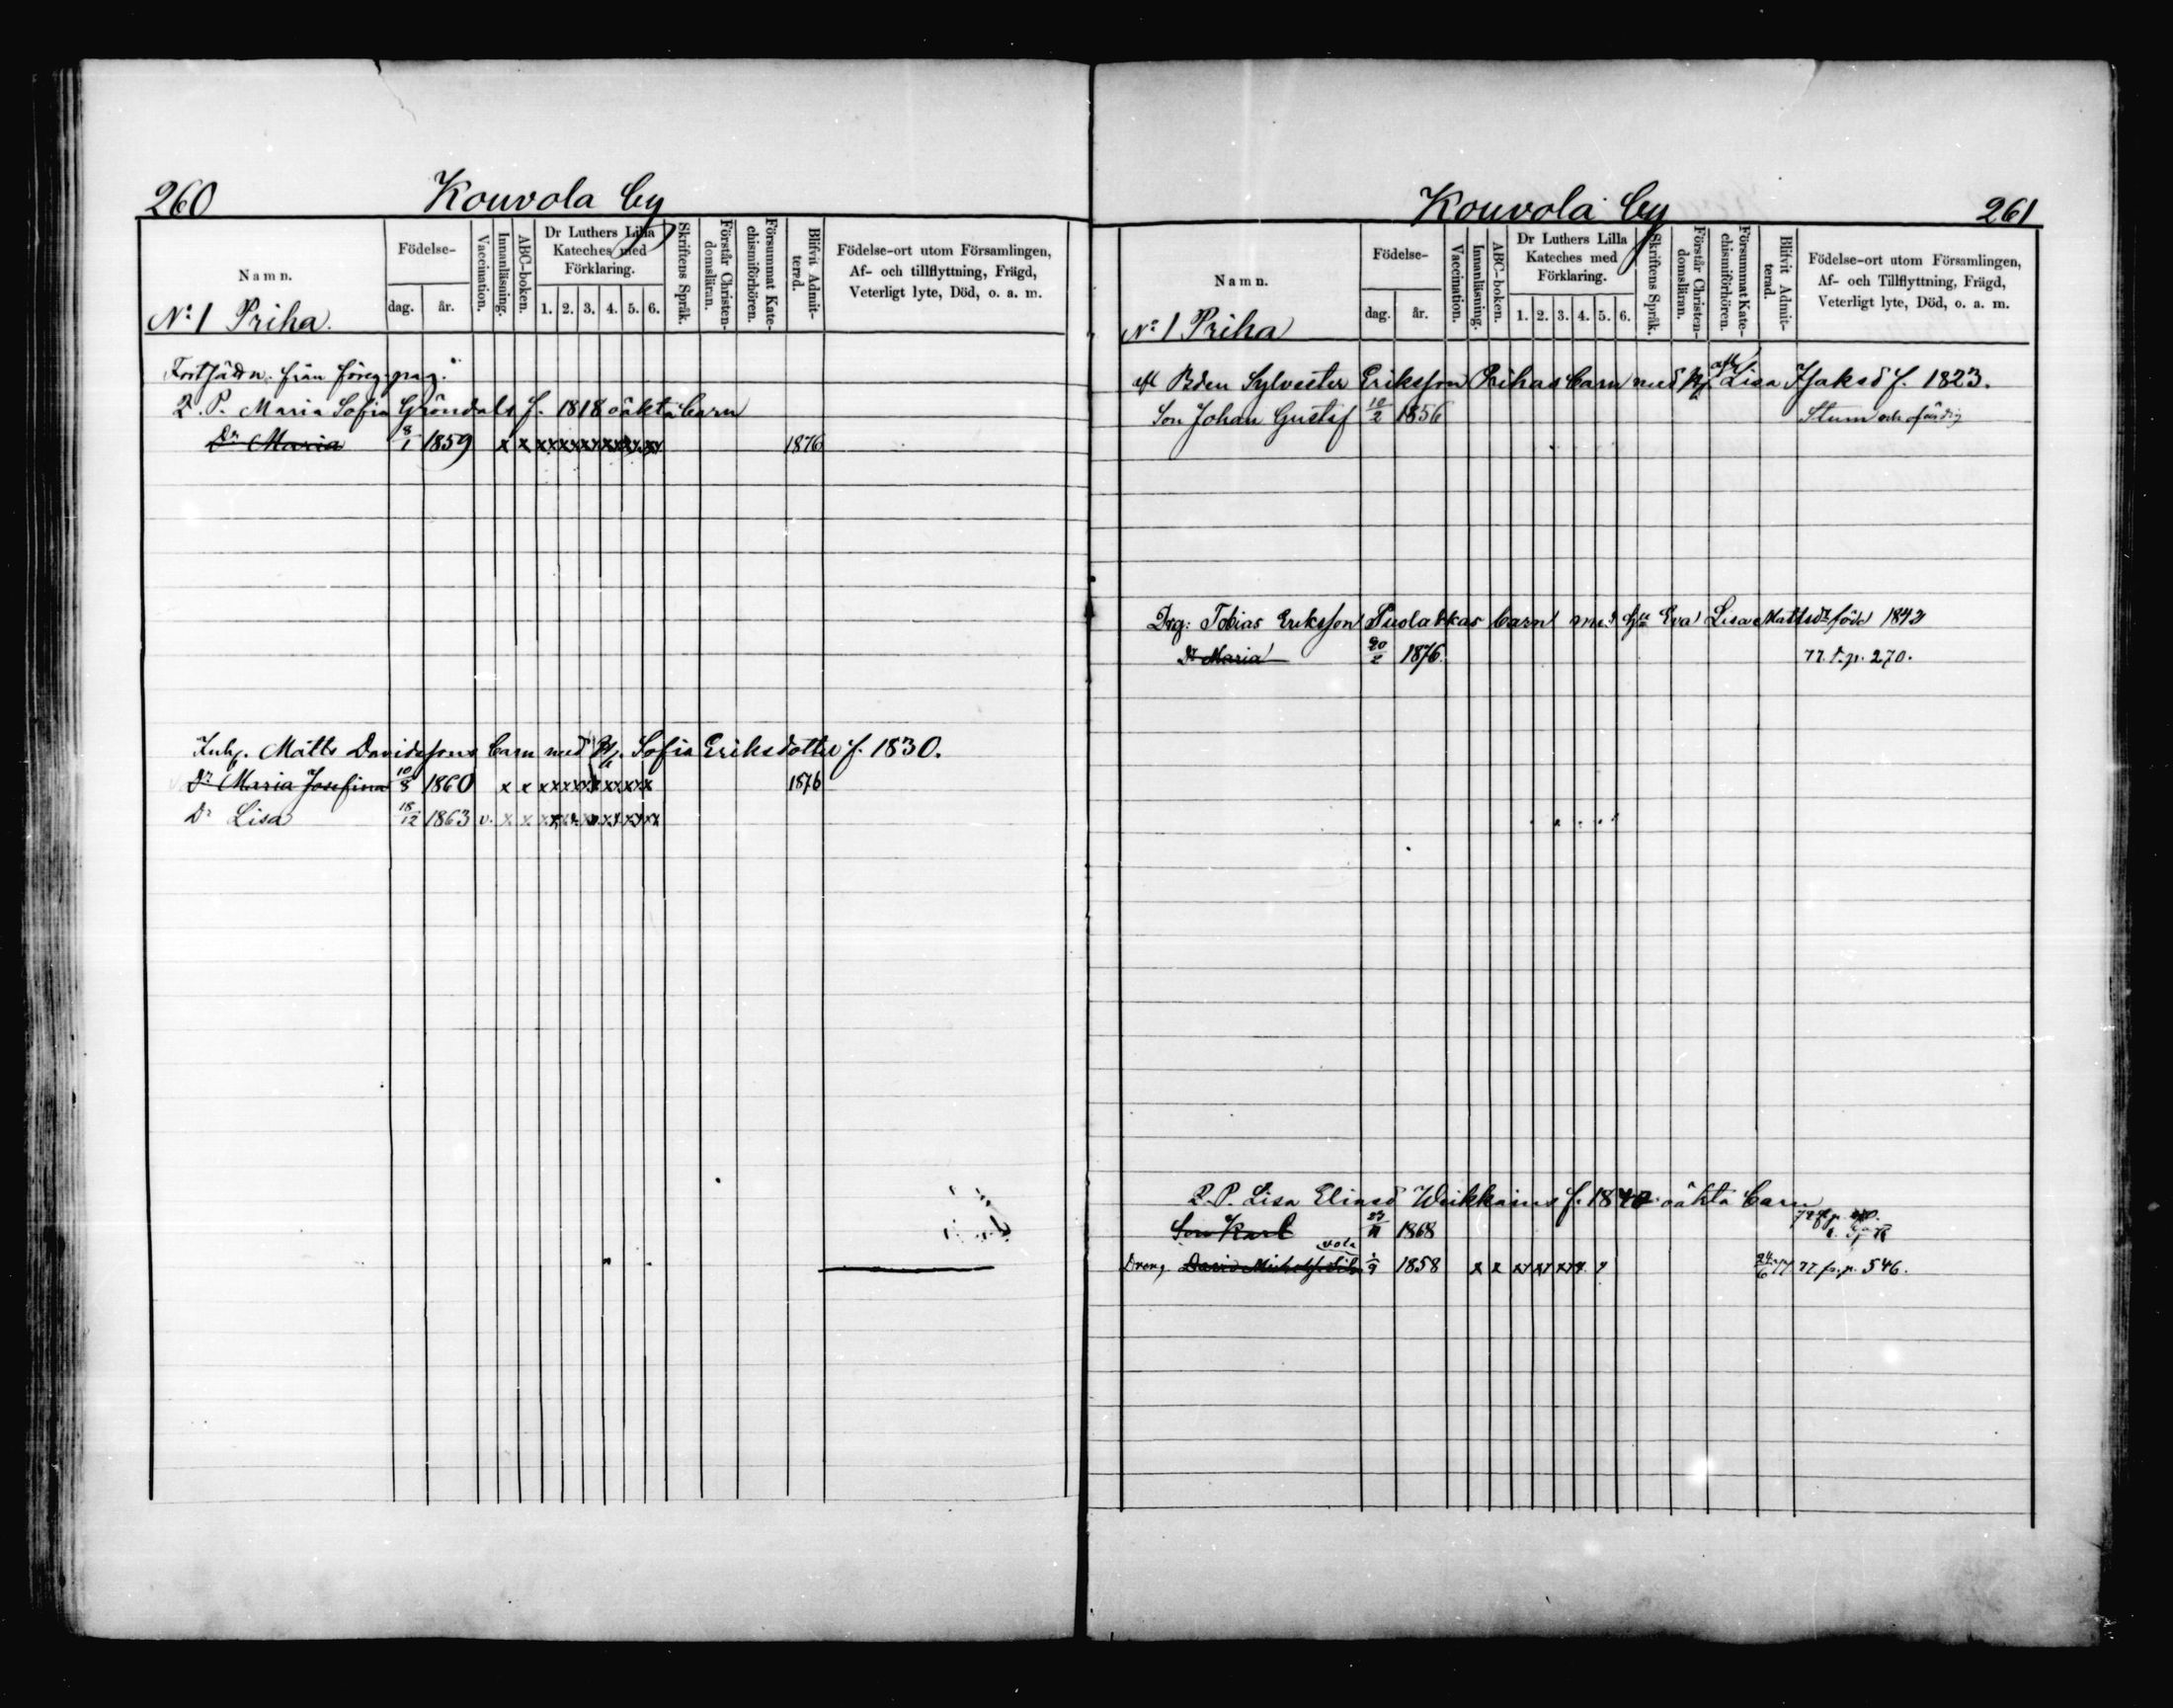 260 Kouvola by
Namn.
Födelse-
dag. år.
Vaccination.
Innanläsning.
ABC-boken.
Dr Luthers Lilla Kateches med Förklaring.
1. 2. 3. 4. 5. 6.
Skriftens Språk.
Förstår Christendomsläran.
Försummat Katechismiförhören.
Blifvit Admitterad.
Födelse-ort utom Församlingen,
Af- och tillflyttning, Frägd,
Veterligt lyte, Död, o. a. m.
No 1 Priha.
från föreg. pag.
Q. P. Maria Sofia Gröndals f. 1818 oäkta barn
Dr Maria 8/1 1859 x x 1876
Inh. Matts Davidssons barn med H. Sofia Eriksdotter f. 1830.
Dr Maria Josefina 10/8 1860 x x 1876
Dr Lisa 18/12 1863 v. x x
Kouvola by 261
Namn.
Födelse-
dag. år.
Vaccination.
Innanläsning.
ABC-boken.
Dr Luthers Lilla Kateches med Förklaring.
1. 2. 3. 4. 5. 6.
Skriftens Språk.
Förstår Christendomsläran.
Försummat Katechismiförhören.
Blifvit Admitterad.
Födelse-ort utom Församlingen,
Af- och Tillflyttning, Frägd,
Veterligt lyte, Död, o. a. m.
No 1 Priha
afl Bden Sylvester Eriksson Prihas barn med H. afl Lisa Isaksd f. 1823.
Son Johan Gustaf 10/2 1856 Stum och
Drg: Tobias Eriksson Puolakkas barn med Eva Lisa Mattsdr född 1842
Dr Maria 20/2 1876. 77. t. p. 270.
Q. P. Lisa Eliasd f. 1842 oäkta barn
Son Karl 1868
Dreng David 1/9 1858 x x 24/6 77 77. fr. p. 546.